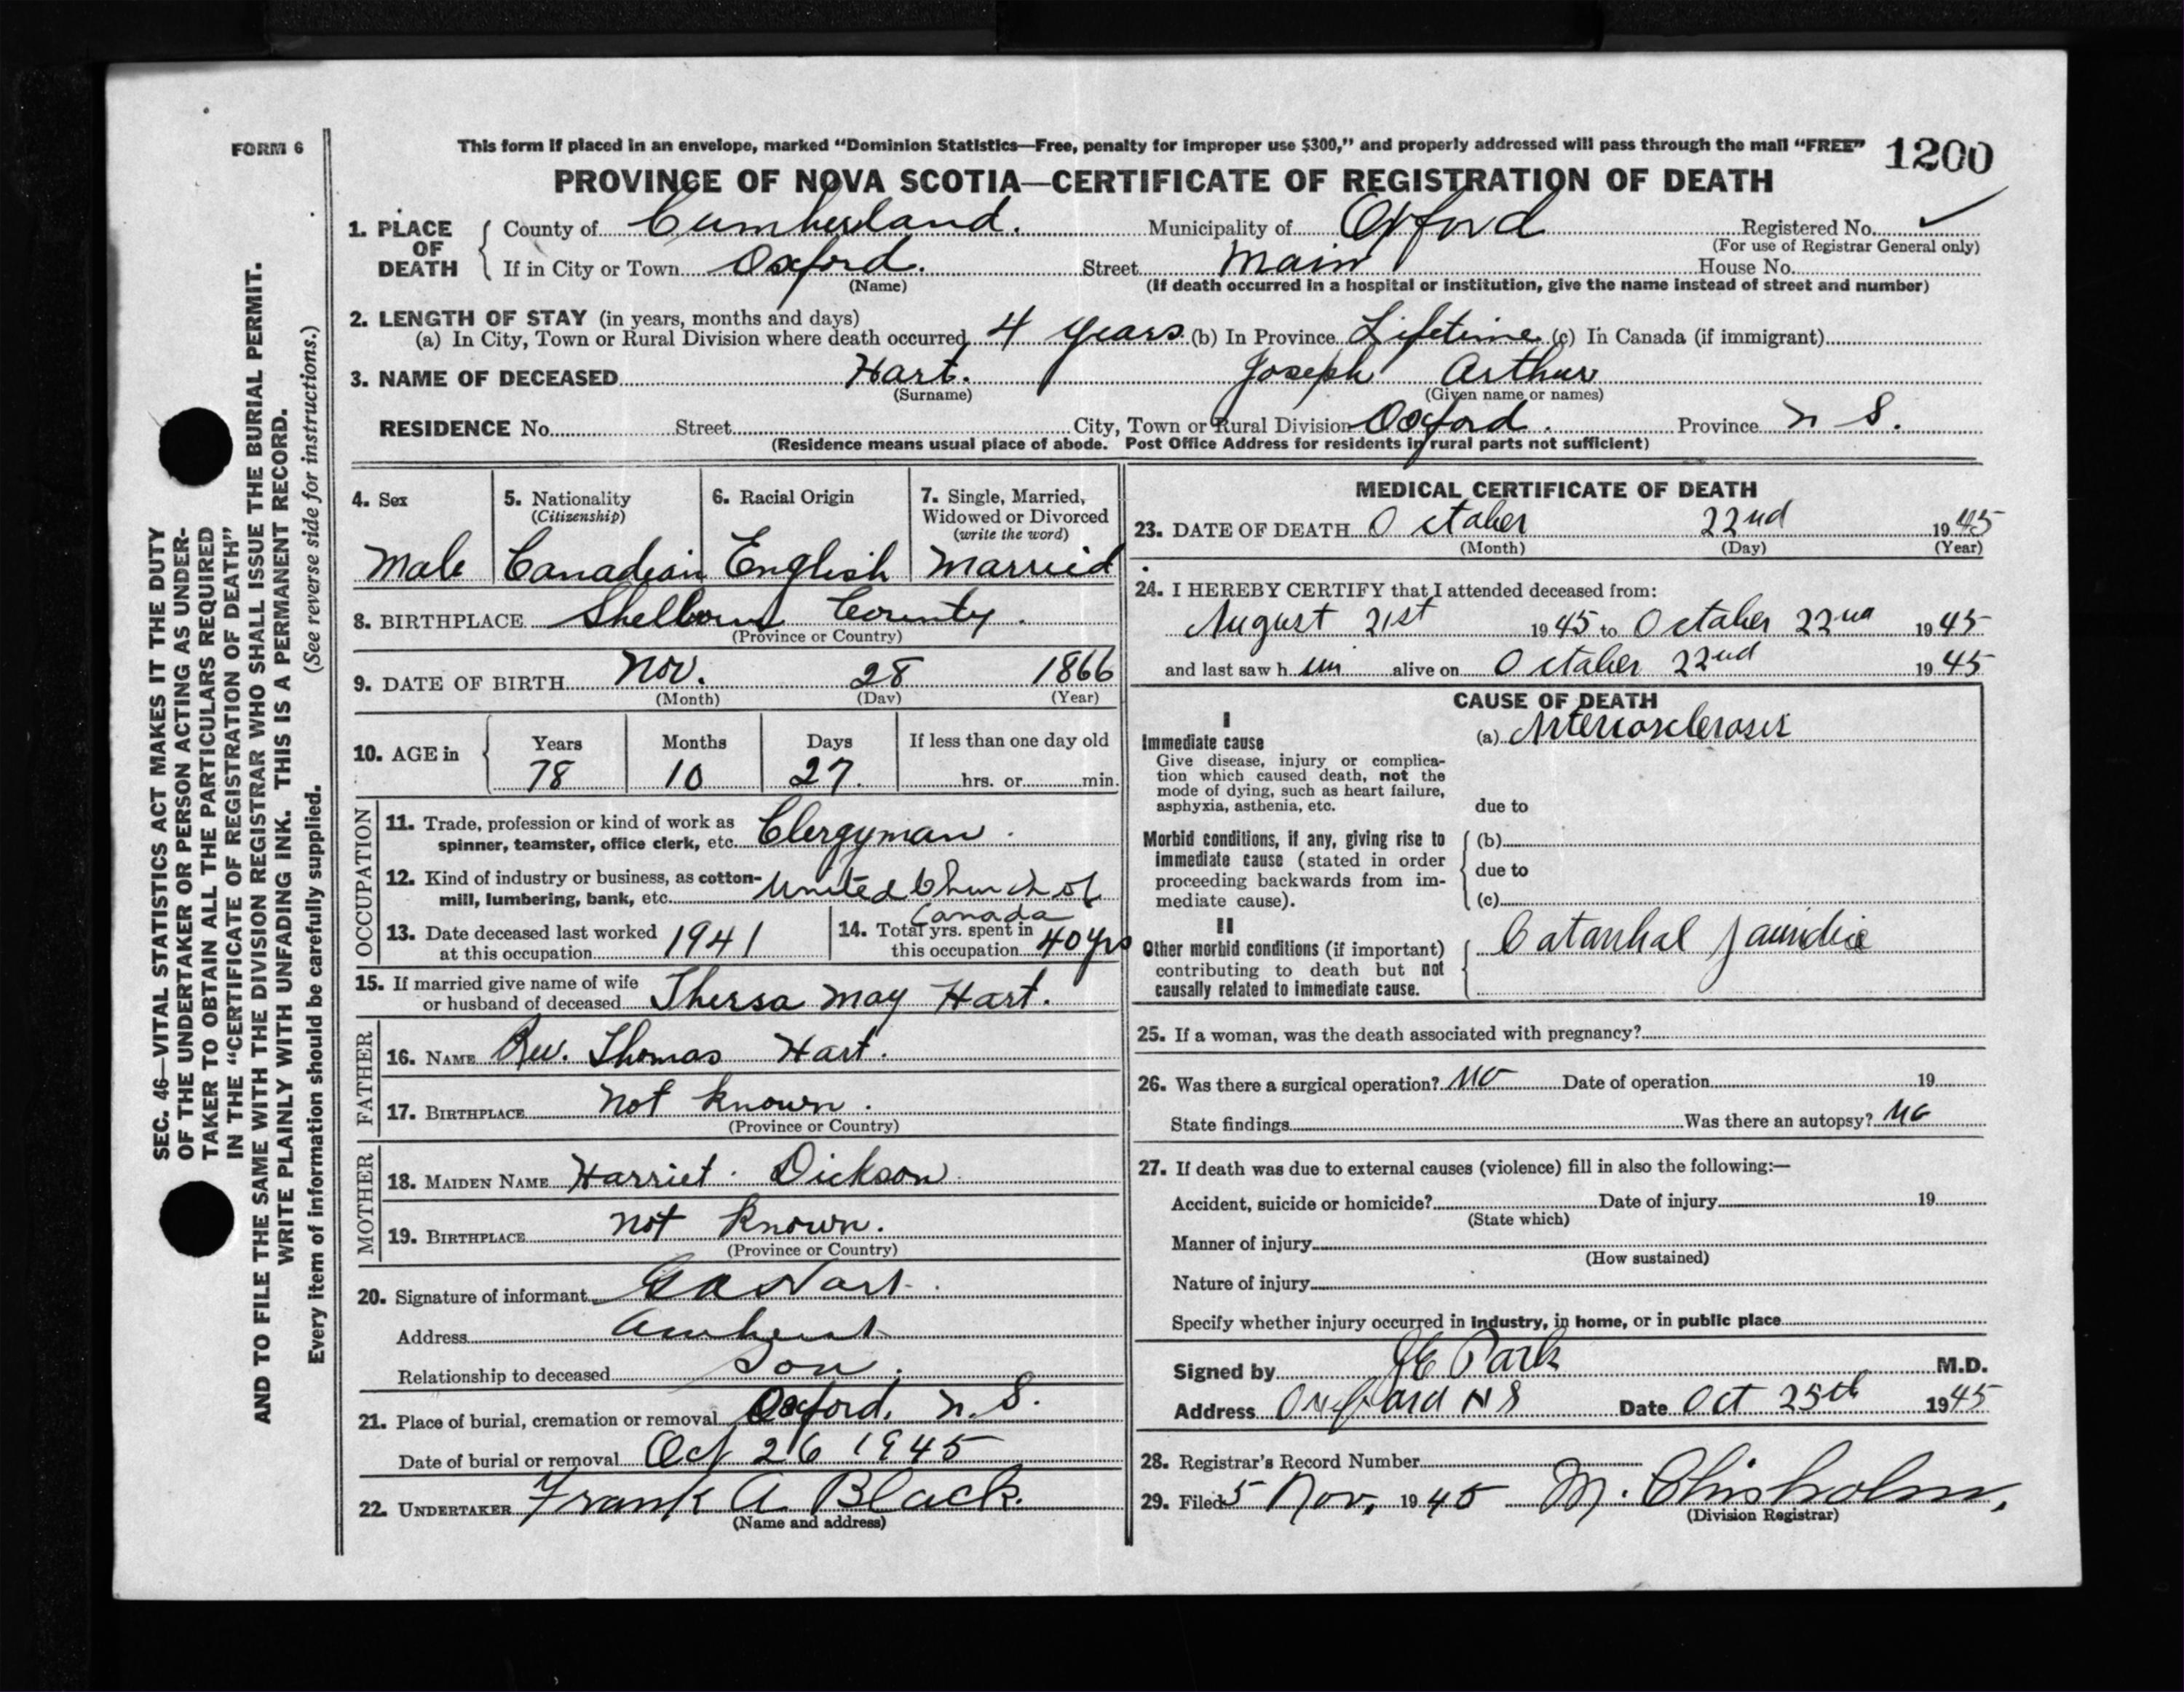 FORM 6
This form if placed in an envelope, marked “Dominion Statistics—Free, penalty for improper use $300,” and properly addressed will pass through the mail “FREE”
1200
PROVINCE OF NOVA SCOTIA—CERTIFICATE OF REGISTRATION OF DEATH
1. PLACE OF DEATH County of Cumberland. Municipality of Oxford Registered No. ✓
(For use of Registrar General only)
If in City or Town Oxford. Street Main House No.
(Name) (If death occurred in a hospital or institution, give the name instead of street and number)
2. LENGTH OF STAY (in years, months and days)
(a) In City, Town or Rural Division where death occurred 4 years (b) In Province Lifetime (c) In Canada (if immigrant)
3. NAME OF DECEASED Hart. Joseph Arthur
(Surname) (Given name or names)
RESIDENCE No. Street City, Town or Rural Division Oxford. Province N S.
(Residence means usual place of abode. Post Office Address for residents in rural parts not sufficient)
4. Sex
Male
5. Nationality
(Citizenship)
Canadian
6. Racial Origin
English
7. Single, Married,
Widowed or Divorced
(write the word)
Married
8. BIRTHPLACE Shelbourn County.
(Province or Country)
9. DATE OF BIRTH Nov. 28 1866
(Month) (Day) (Year)
10. AGE in
Years Months Days If less than one day old
78 10 27. hrs. or min.
OCCUPATION
11. Trade, profession or kind of work as
spinner, teamster, office clerk, etc. Clergyman.
12. Kind of industry or business, as cotton-
mill, lumbering, bank, etc. United Church of
Canada
13. Date deceased last worked
at this occupation 1941
14. Total yrs. spent in
this occupation 40 yrs
15. If married give name of wife
or husband of deceased Thersa May Hart.
FATHER
16. NAME Rev. Thomas Hart.
17. BIRTHPLACE Not known.
(Province or Country)
MOTHER
18. MAIDEN NAME Harriet Dickson.
19. BIRTHPLACE not known.
(Province or Country)
20. Signature of informant Hart.
Address Amherst
Relationship to deceased Son.
21. Place of burial, cremation or removal Oxford, N. S.
Date of burial or removal Oct 26 1945
22. UNDERTAKER Frank A. Black.
(Name and address)
MEDICAL CERTIFICATE OF DEATH
23. DATE OF DEATH October 22nd 1945
(Month) (Day) (Year)
24. I HEREBY CERTIFY that I attended deceased from:
August 21st 1945 to October 22nd 1945
and last saw h im alive on October 22nd 1945
CAUSE OF DEATH
I
Immediate cause
Give disease, injury or complica-
tion which caused death, not the
mode of dying, such as heart failure,
asphyxia, asthenia, etc.
(a) Arteriosclerosis
due to
Morbid conditions, if any, giving rise to
immediate cause (stated in order
proceeding backwards from im-
mediate cause).
(b)
due to
(c)
II
Other morbid conditions (if important)
contributing to death but not
causally related to immediate cause.
Catarrhal Jaundice
25. If a woman, was the death associated with pregnancy?
26. Was there a surgical operation? No Date of operation 19
State findings Was there an autopsy? No
27. If death was due to external causes (violence) fill in also the following:—
Accident, suicide or homicide? Date of injury 19
(State which)
Manner of injury
(How sustained)
Nature of injury
Specify whether injury occurred in industry, in home, or in public place
Signed by J E Park M.D.
Address Oxford N S Date Oct 25th 1945
28. Registrar's Record Number
29. Filed 5 Nov. 1945 M. Chisholm,
(Division Registrar)
SEC. 46—VITAL STATISTICS ACT MAKES IT THE DUTY
OF THE UNDERTAKER OR PERSON ACTING AS UNDER-
TAKER TO OBTAIN ALL THE PARTICULARS REQUIRED
IN THE “CERTIFICATE OF REGISTRATION OF DEATH”
AND TO FILE THE SAME WITH THE DIVISION REGISTRAR WHO SHALL ISSUE THE BURIAL PERMIT.
WRITE PLAINLY WITH UNFADING INK. THIS IS A PERMANENT RECORD.
Every item of information should be carefully supplied. (See reverse side for instructions.)